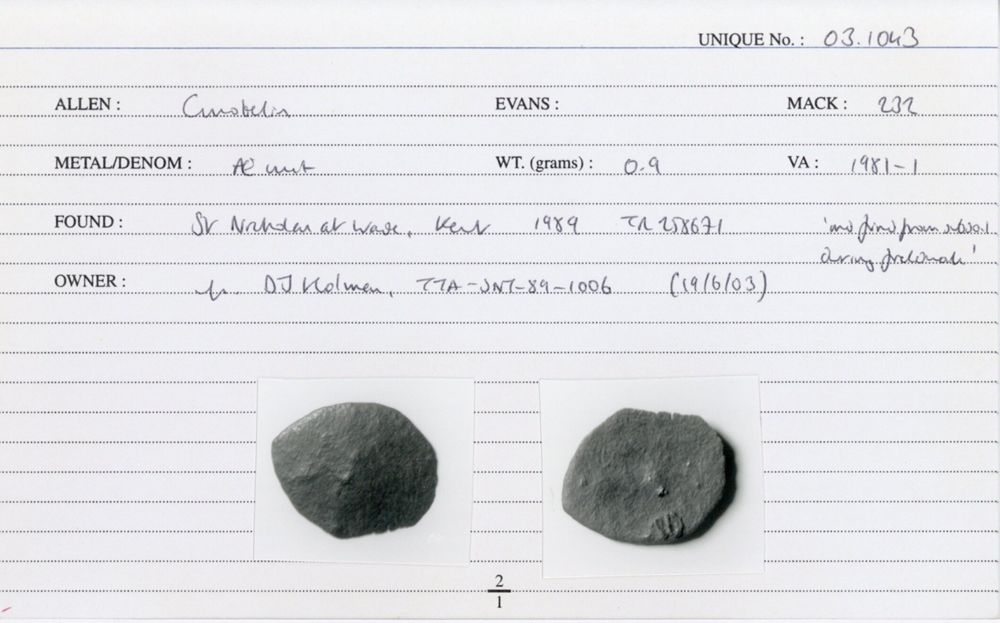 UNIQUE No. : 03.1043
ALLEN : Cunobelin EVANS : MACK : 232
METAL/DENOM : Æ unit WT. (grams) : 0.9 VA : 1981-1
FOUND : St Nicholas at Wade, Kent 1989 TR 258671 find from subsoil
during
OWNER : DJ Holman, TTA-SNT-89-1006 (19/6/03)
2
1